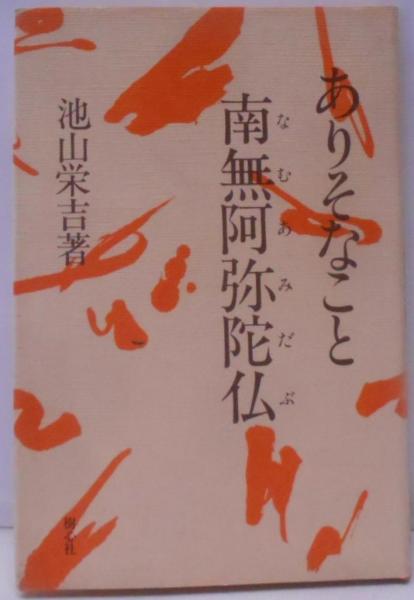 ありそなこと
南無阿弥陀仏
なむあみだぶ
池山栄吉著
樹心社